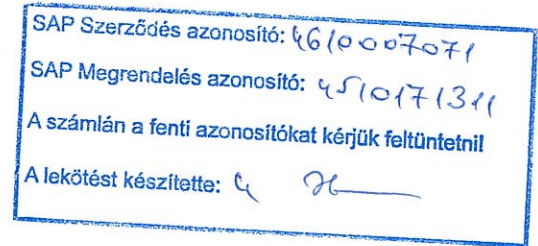 SAP Szerződés azonosító: 4610007071
SAP Megrendelés azonosító: 4510171311
A számlán a fenti azonosítókat kérjük feltüntetni!
A lekötést készítette: